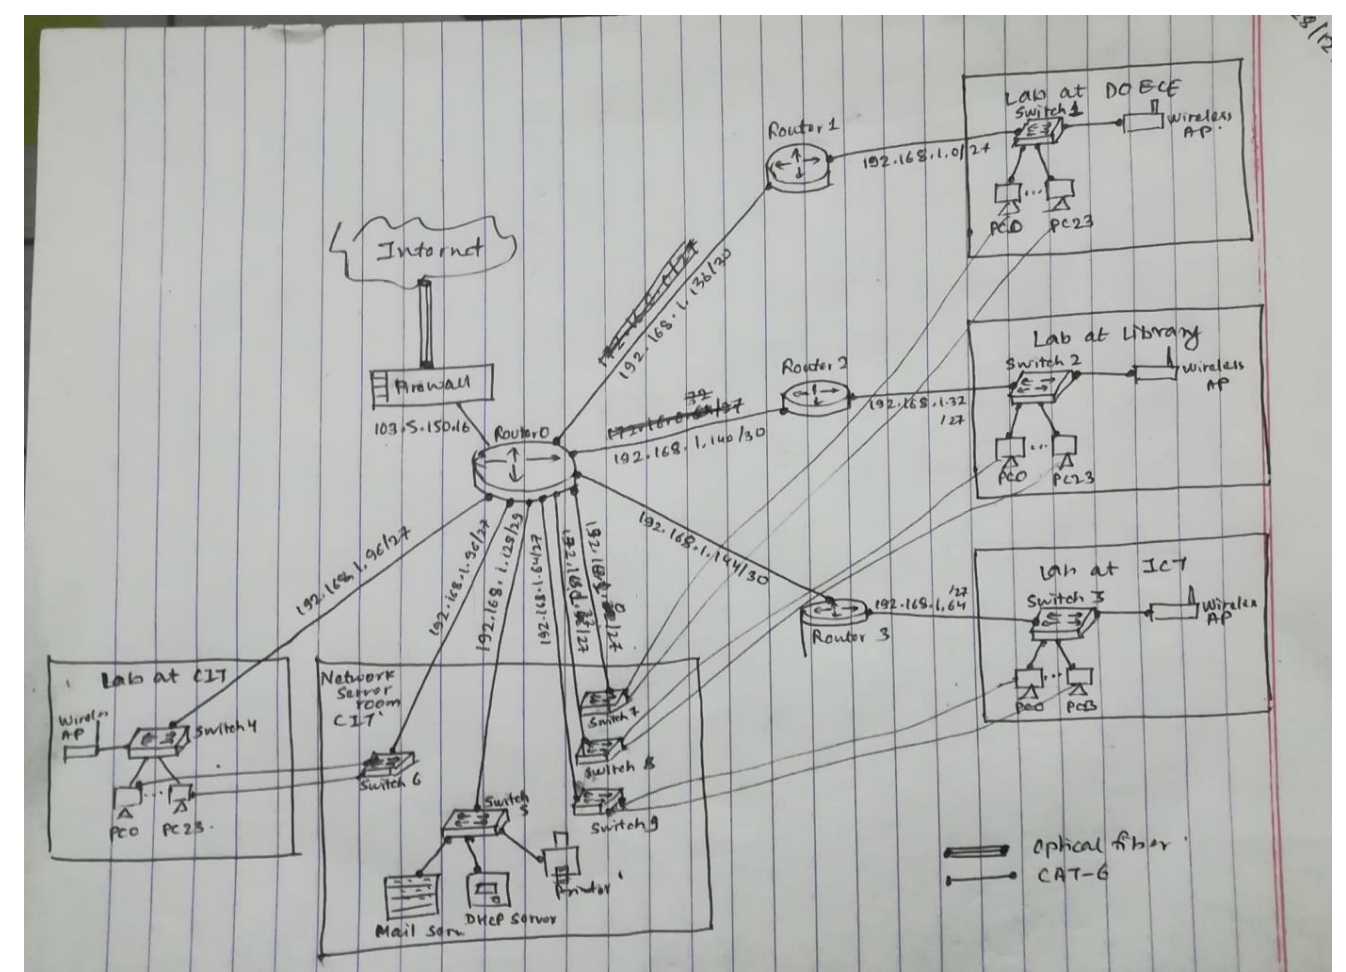 28/12
Lab at DOECE
Switch 1
Wireless
AP
PC0
PC23
Router 1
192.168.1.0/27
Internet
192.168.1.136/30
Firewall
103.5.150.16
Router0
Router 2
32
192.168.1.140/30
192.168.1.32
/27
Lab at Library
Switch 2
Wireless
AP
PC0
PC23
192.168.1.144/30
/27
192.168.1.64
Router 3
Lab at ICT
Switch 3
Wireless
AP
PC0
192.168.1.96/27
192.168.1.96/27
192.168.1.128/29
192.168.1.64/27
Lab at CIT
AP
Switch 4
PC0
PC23.
Network
Server
room
CIT
Switch 6
Switch
5
Switch 7
Switch 8
Switch 9
Mail
DHCP Server
Printer
Optical fiber
CAT-6